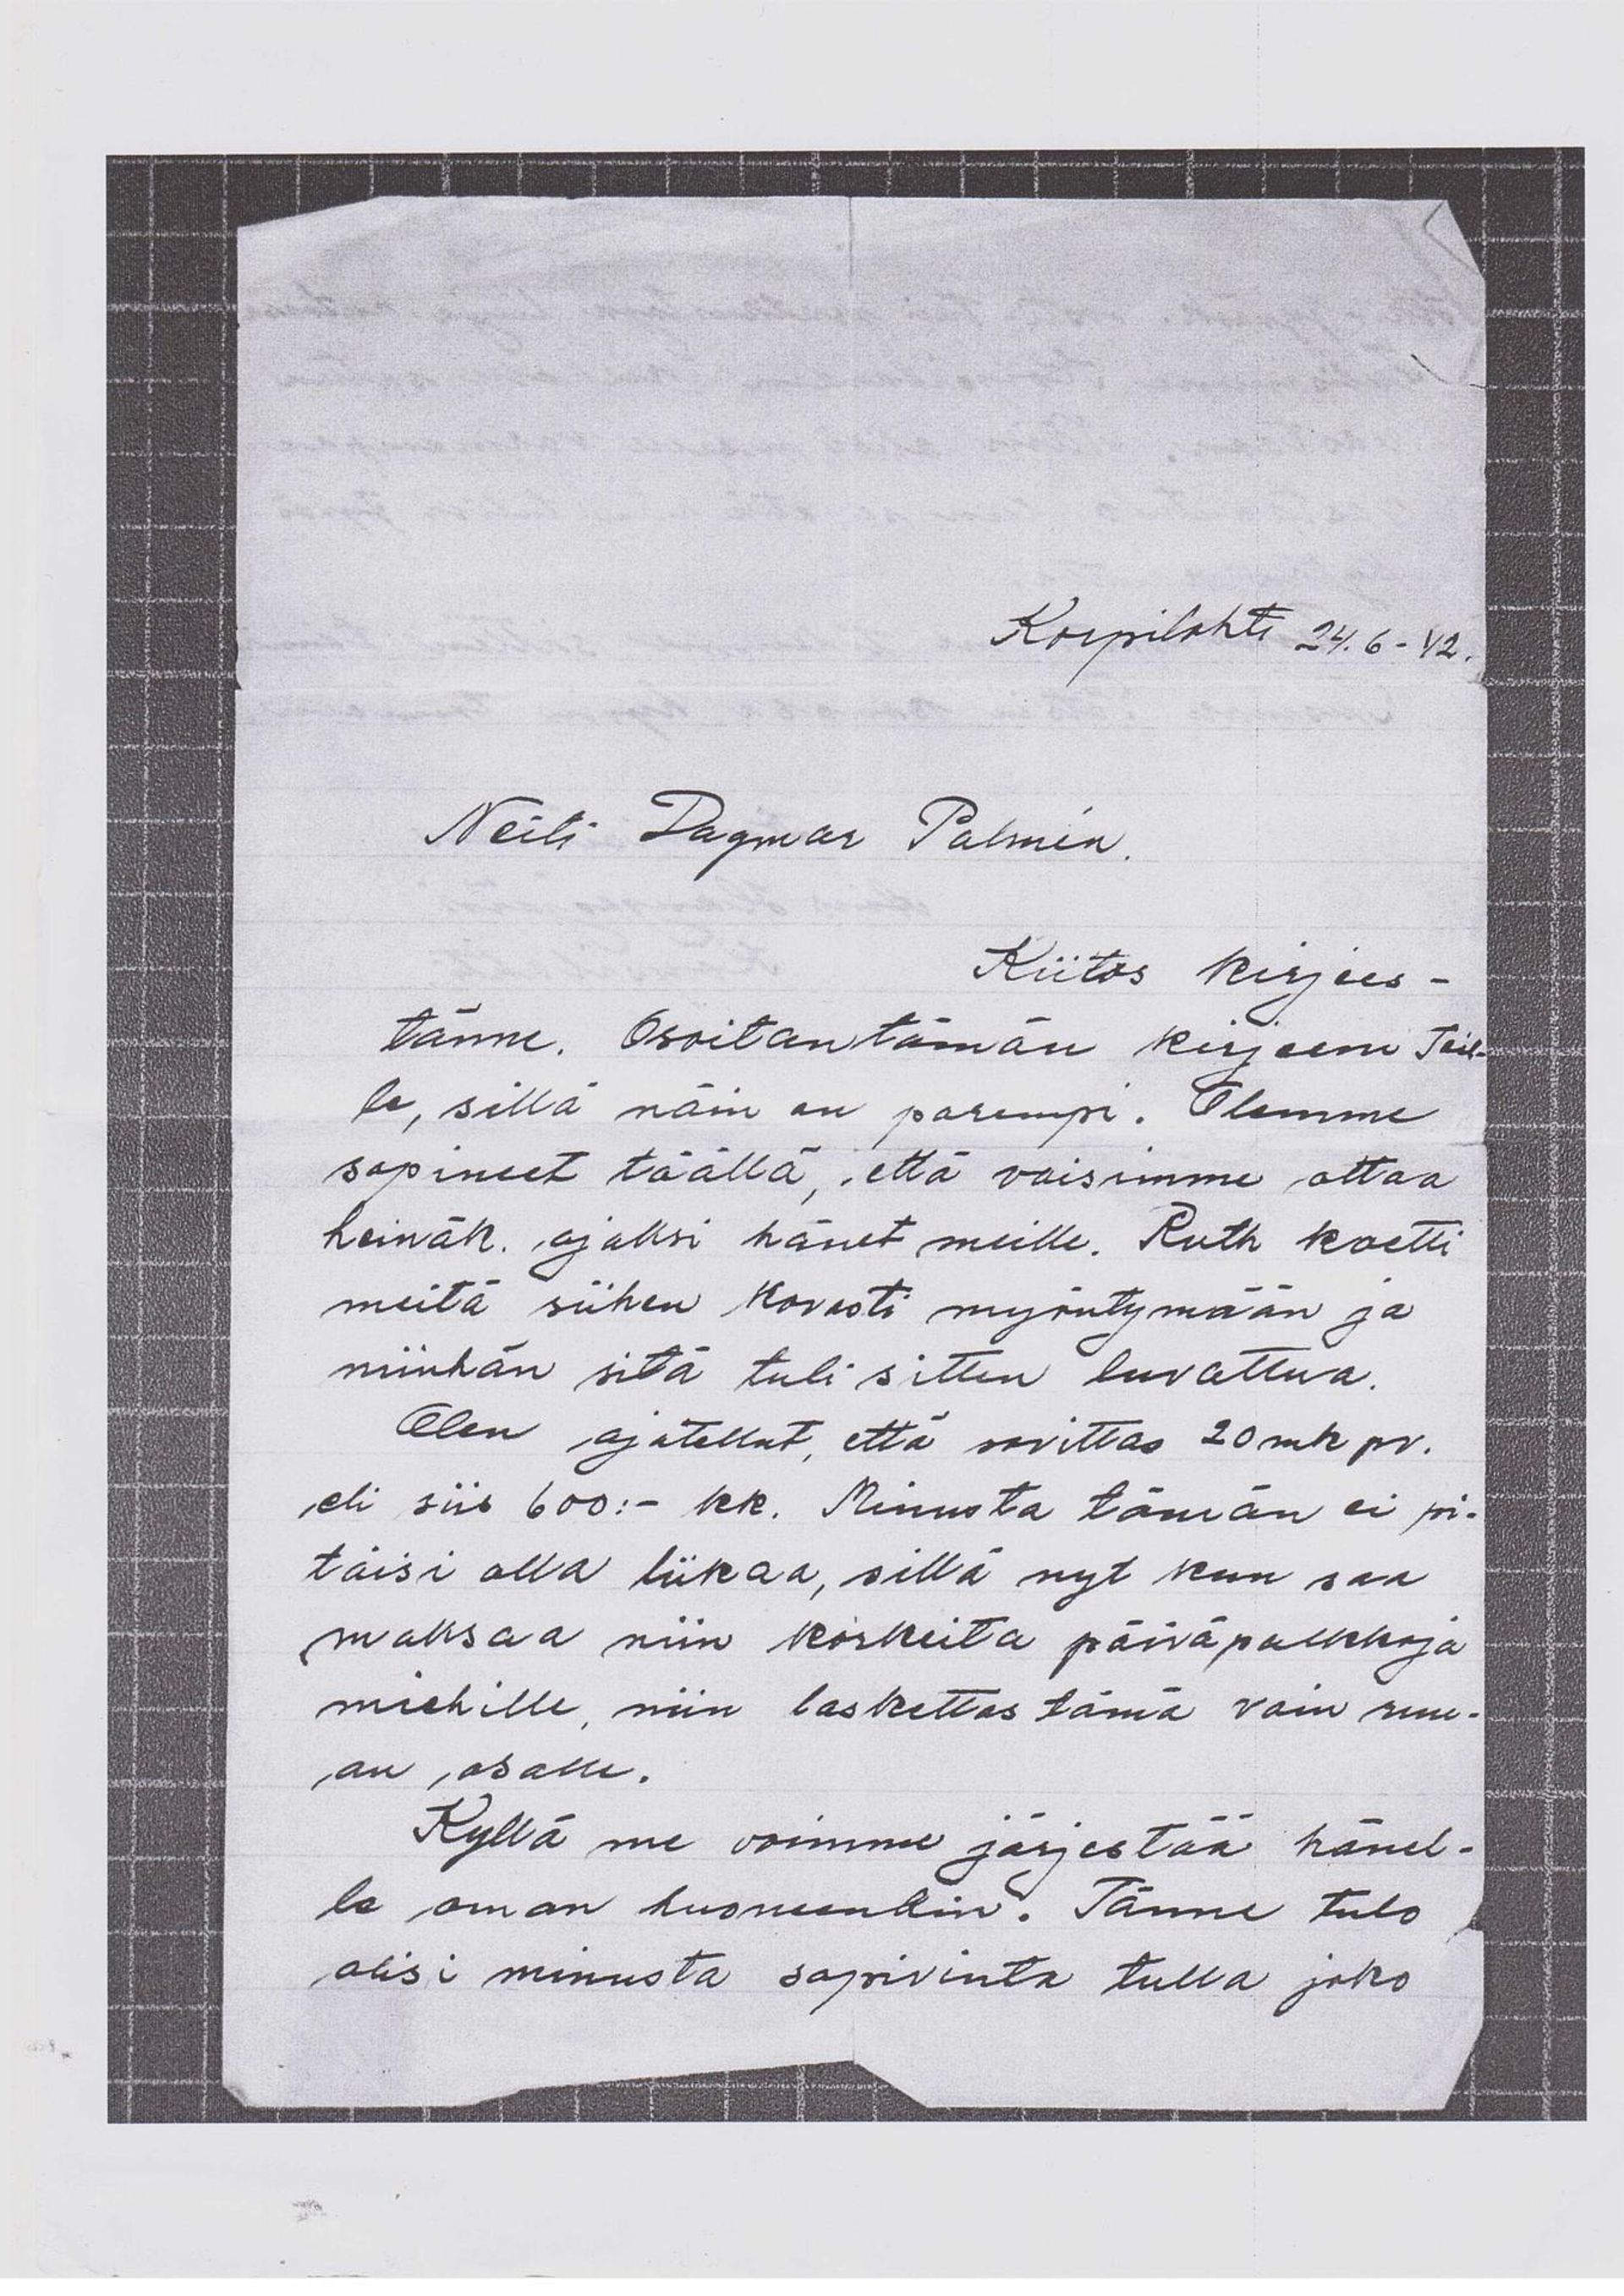 Korpilahti 24.6-42.
Neiti Dagmar Palmén.
Kiitos kirjees-
tänne. Osoitan tämän kirjeeni Teil-
le, sillä näin on parempi. Olemme
sopineet täällä, että voisimme ottaa
heinäk. ajaksi hänet meille. Ruth koetti
meitä siihen kovasti myöntymään ja
niinhän sitä tuli sitten luvattua.
Olen ajatellut, että sovittas 20 mk pv.
eli siis 600:- kk. Minusta tämän ei pi-
täisi olla liikaa, sillä nyt kun saa
maksaa niin korkeita päiväpalkkoja
miehille, niin laskettas tämä vain ruu-
an osalle.
Kyllä me voimme järjestää hänel-
le oman huoneenkin. Tänne tulo
olisi minusta sopivinta tulla joko